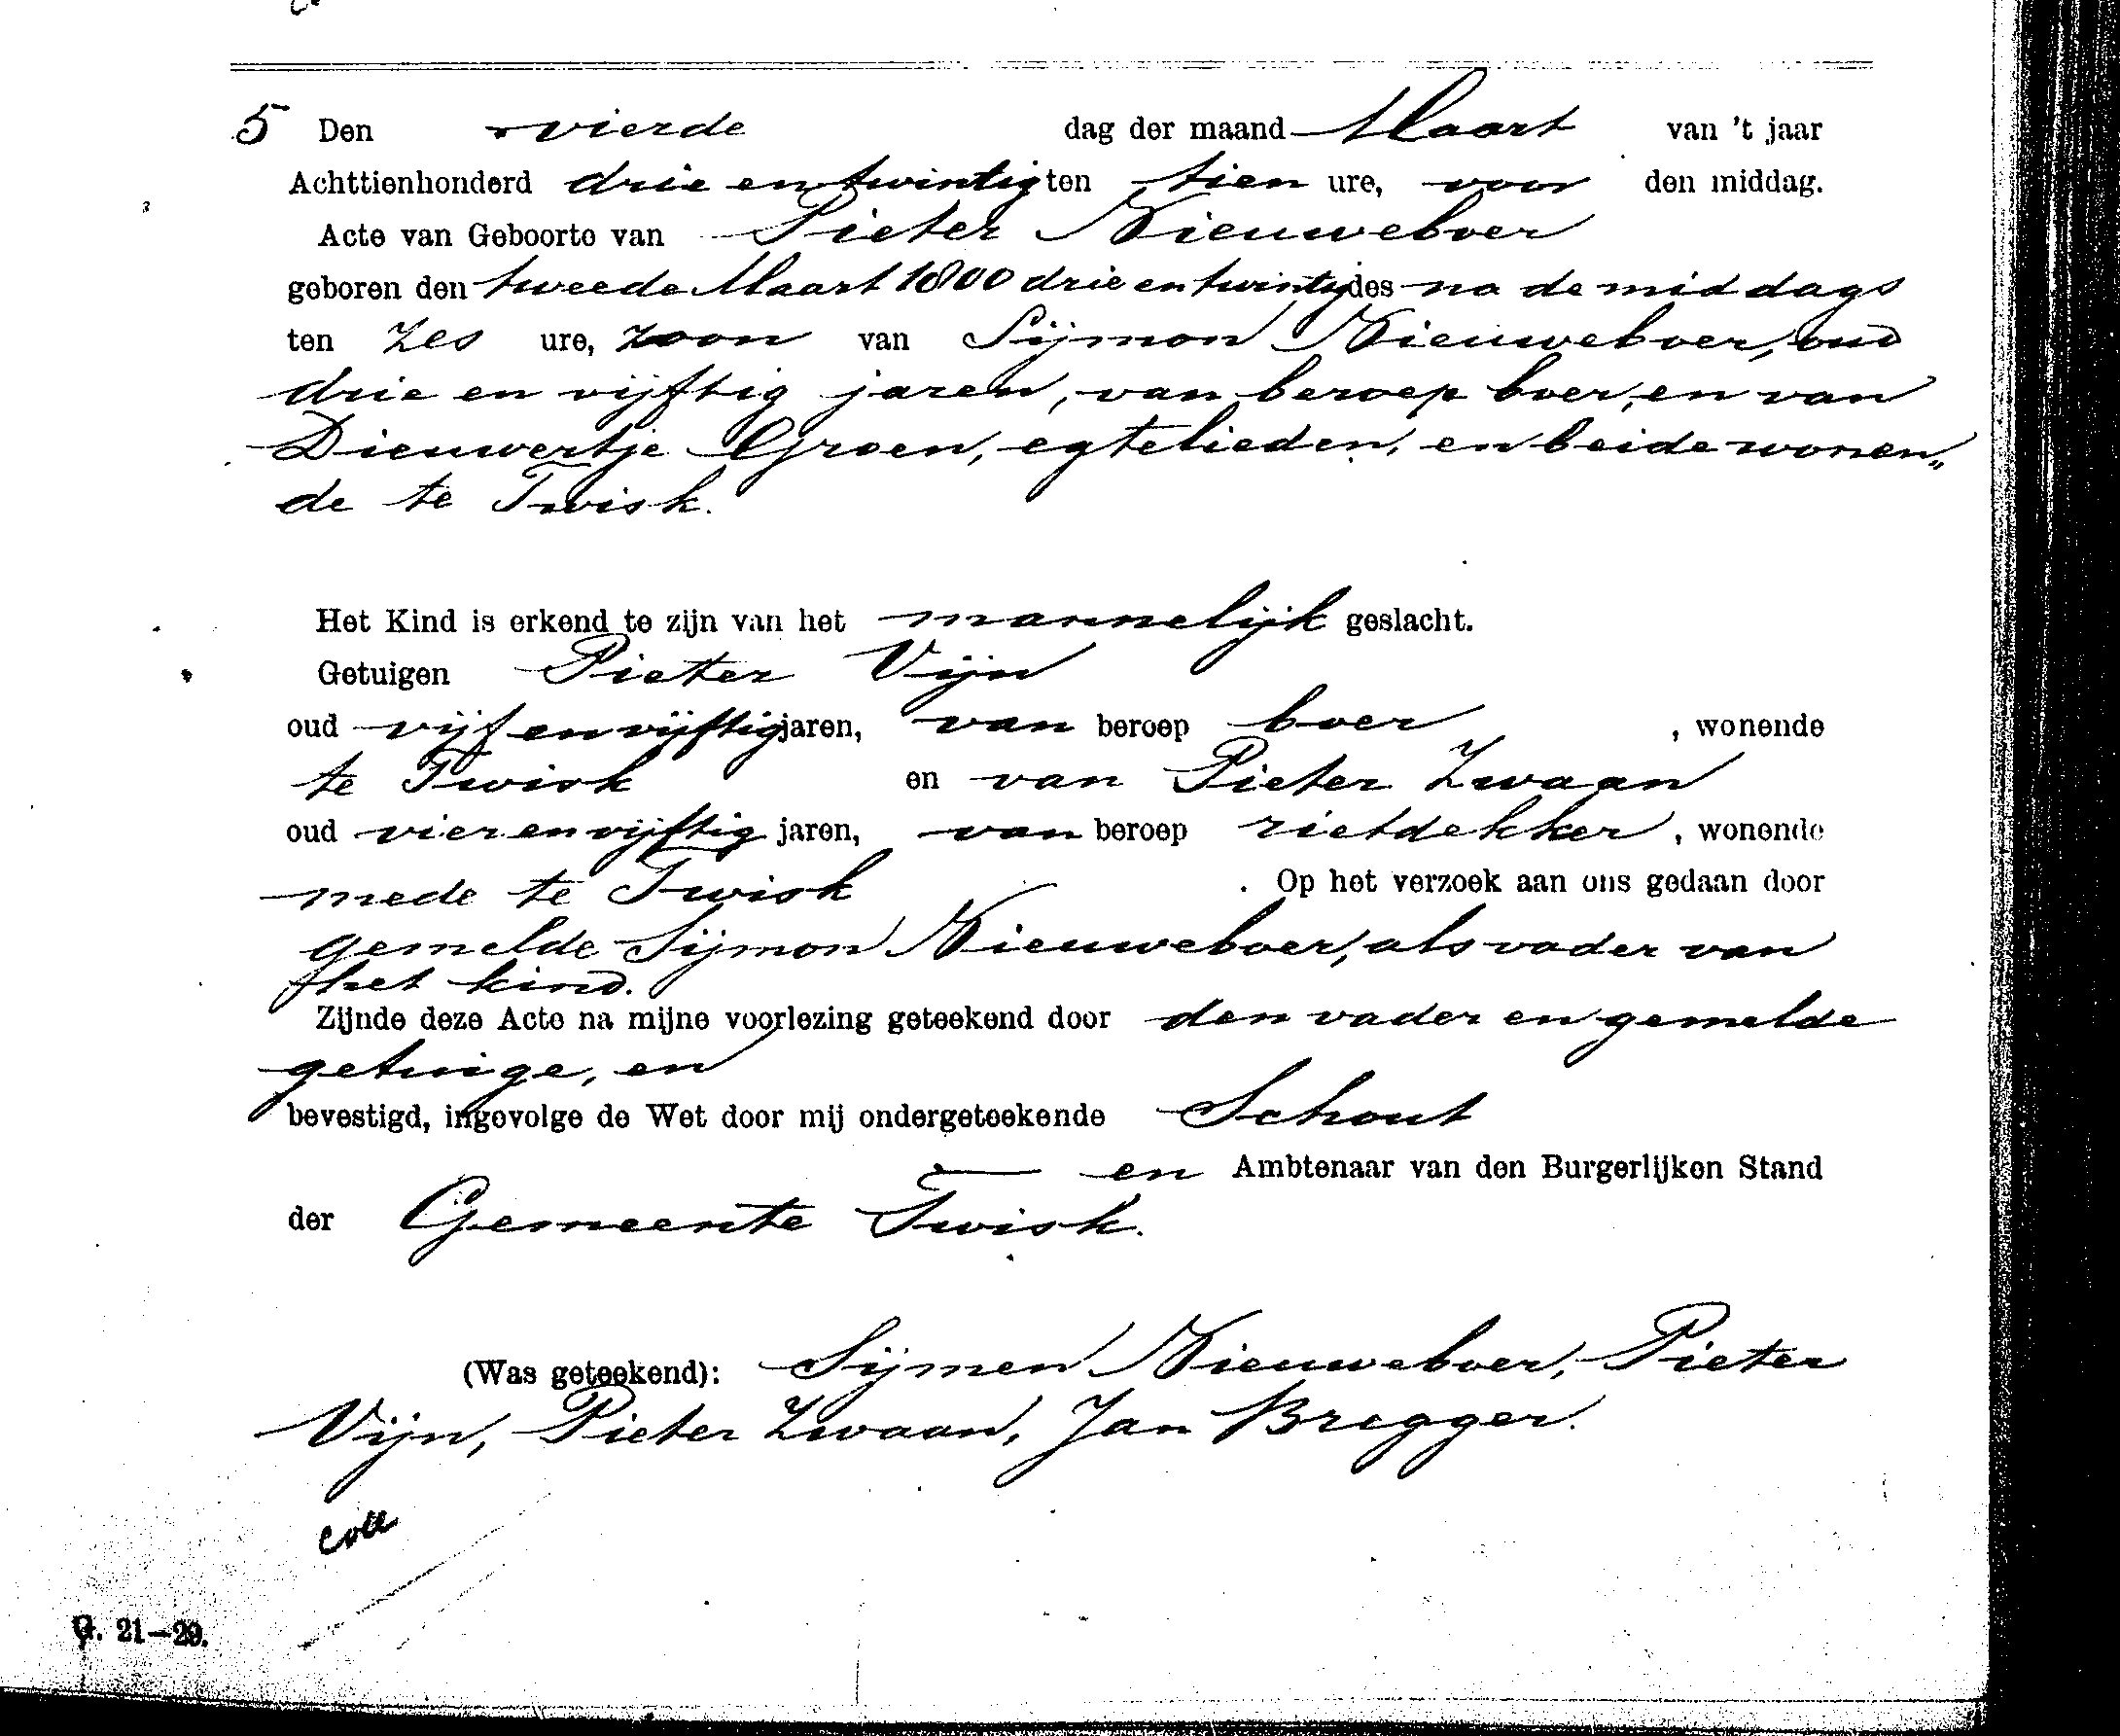 5 Den vierde dag der maand Maart van 't jaar
Achttienhonderd drie en twintig ten tien ure, voor den middag.
Acte van Geboorte van Pieter Nieuweboer
geboren den tweede Maart 1800 drie en twintig des na de middags
ten zes ure, zoon van Sijmon Nieuweboer, oud
drie en vijftig jaren, van beroep boer, en van
Dieuwertje Groen, egtelieden, en beide wonen„
de te Twisk.
Het Kind is erkend te zijn van het mannelijk geslacht.
Getuigen Pieter Vijn
oud vijf en vijftig jaren, van beroep boer, wonende
te Twisk en van Pieter Zwaan
oud vier en vijftig jaren, van beroep rietdekker, wonende
mede te Twisk. Op het verzoek aan ons gedaan door
gemelde Sijmon Nieuweboer, als vader van
het kind.
Zijnde deze Acte na mijne voorlezing geteekend door den vader en gemelde
getuige, en
bevestigd, ingevolge de Wet door mij ondergeteekende Schout
en Ambtenaar van den Burgerlijken Stand
der Gemeente Twisk.
(Was geteekend): Sijmen Nieuweboer, Pieter
Vijn, Pieter Zwaan, Jan Bregger.
coll
G. 21—29.